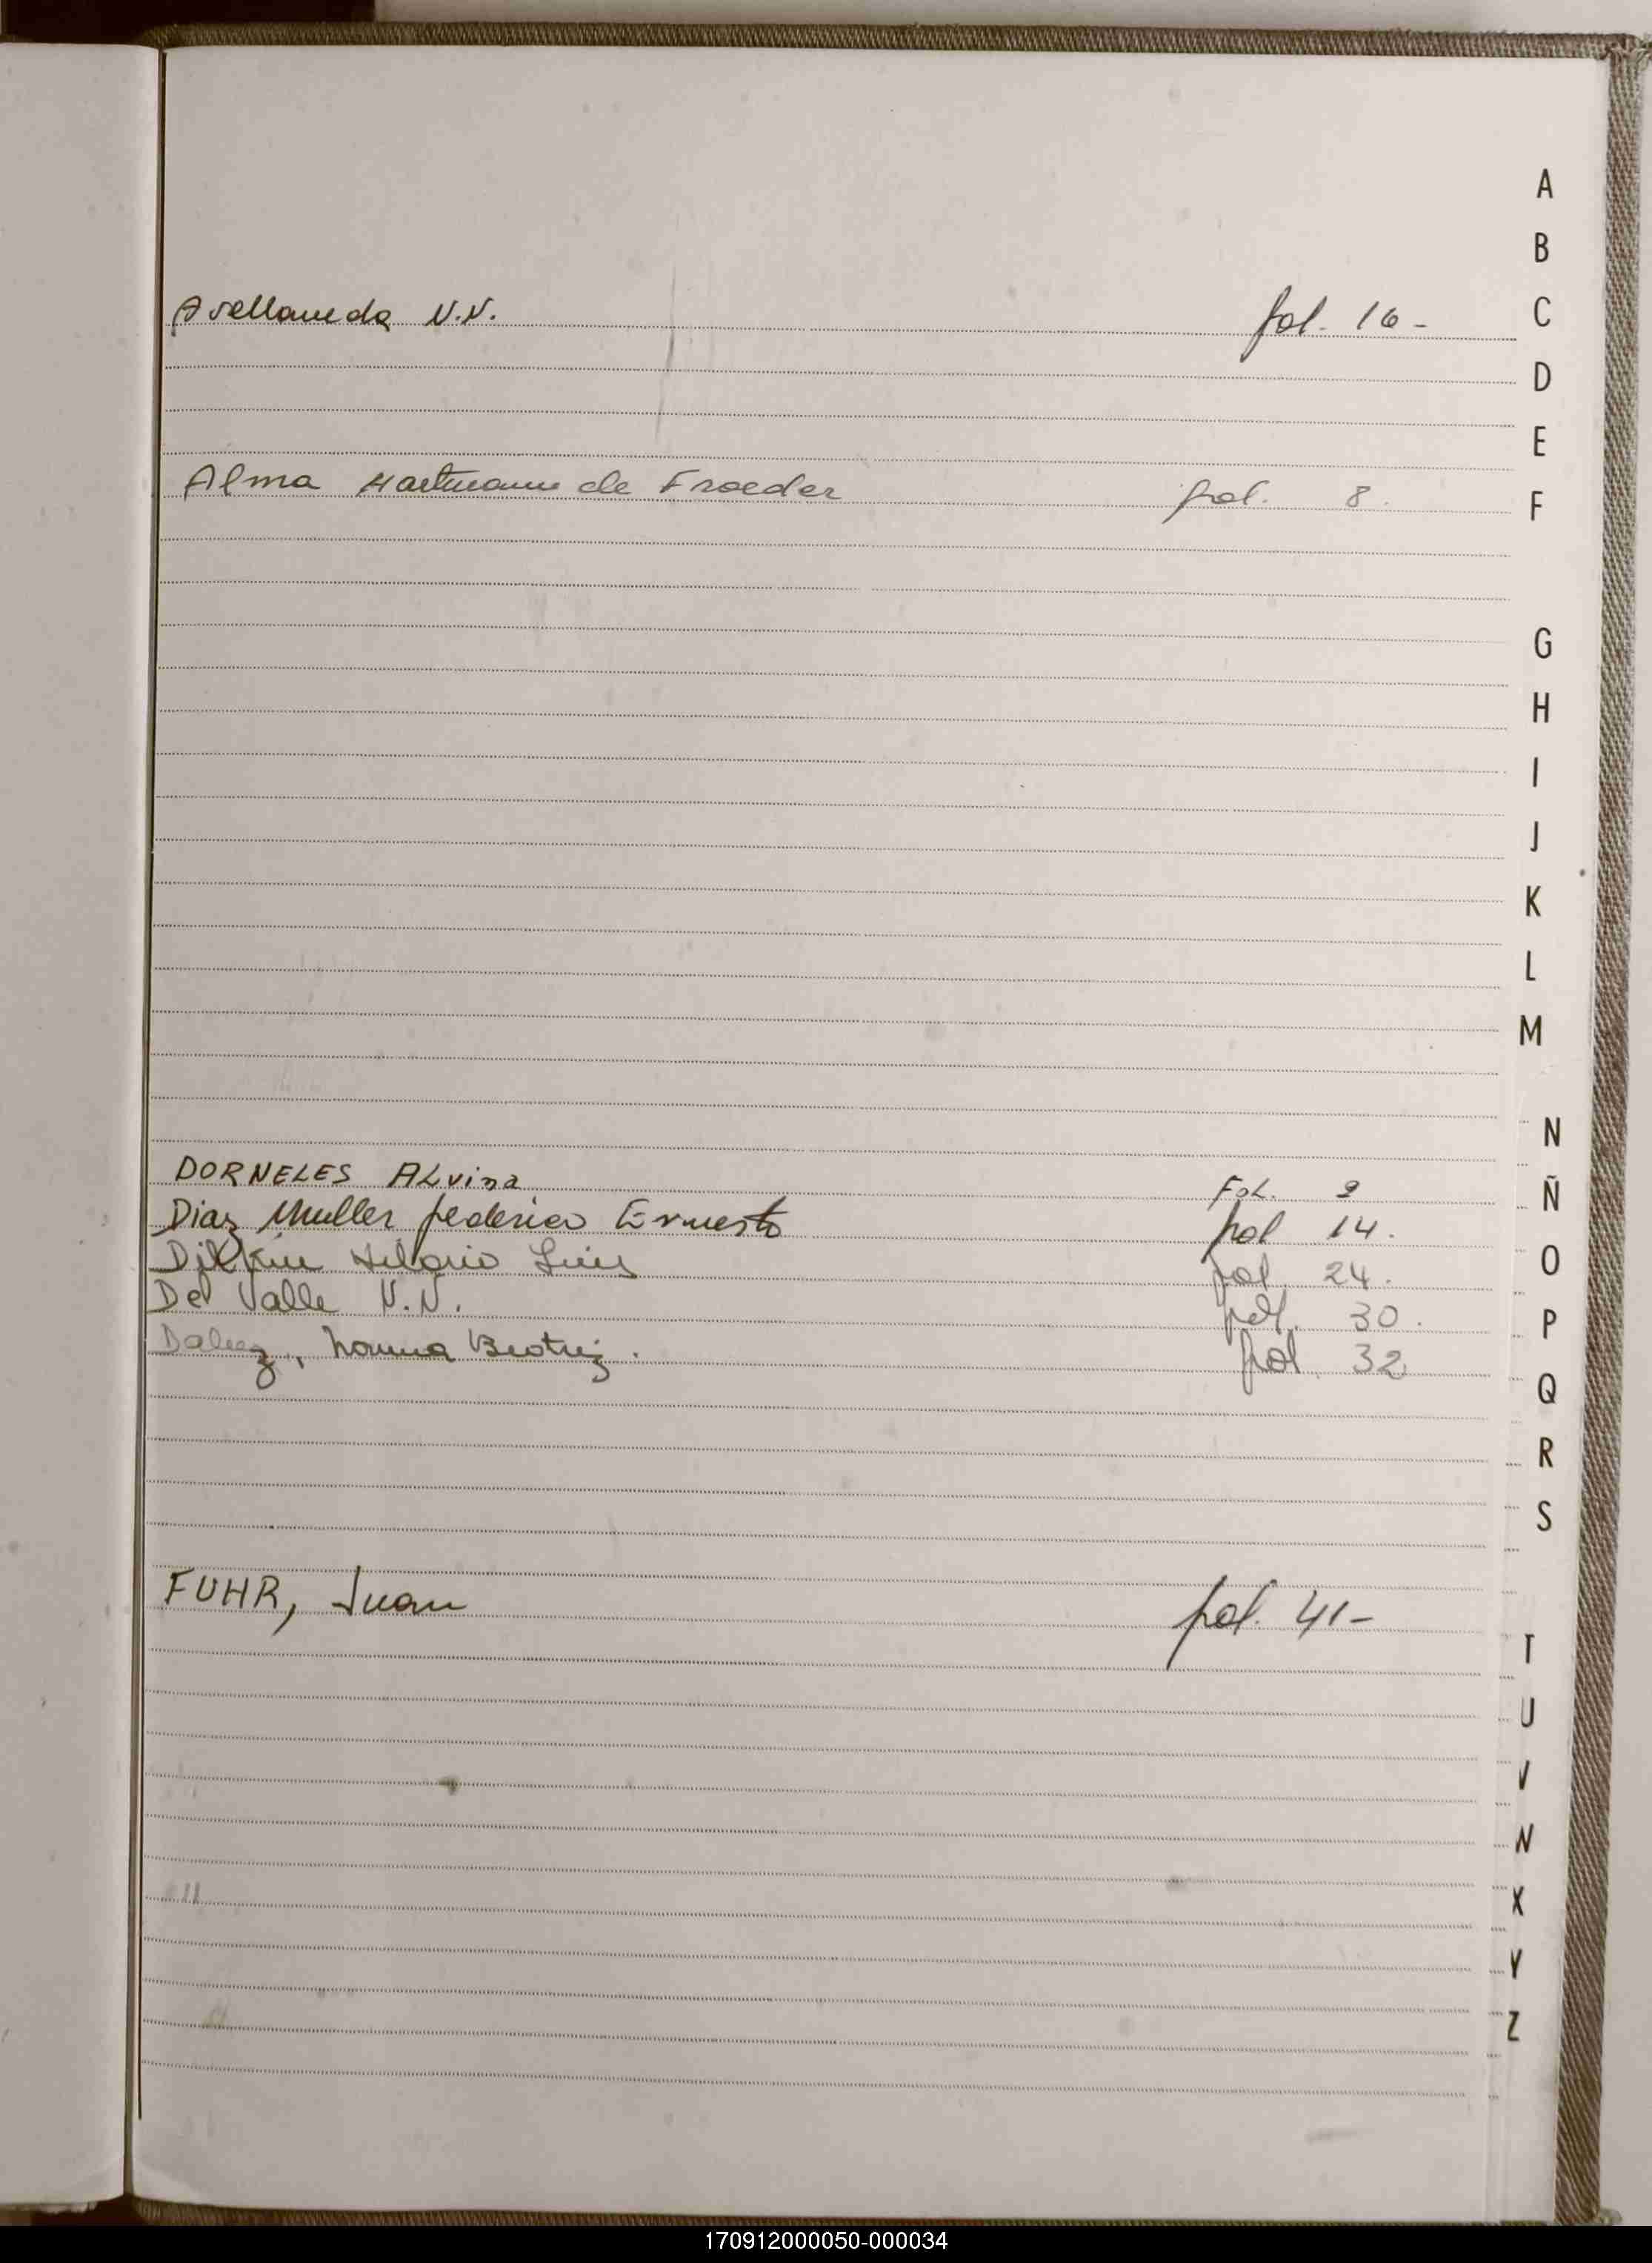 A
B
Avellaneda N.N. fol. 16 - C
D
E
Alma Hartmann de Froeder fol. 8. F
G
H
I
J
K
L
M
N
DORNELES ALvina FoL. 9 Ñ
Diaz Muller federico Ernesto fol 14.
Hilario Luis fol. 24. O
Del Valle N.N. fol. 30. P
Norma Beatriz. fol. 32
Q
R
S
FUHR, Juan fol. 41-
T
U
V
W
X
Y
Z
170912000050-000034